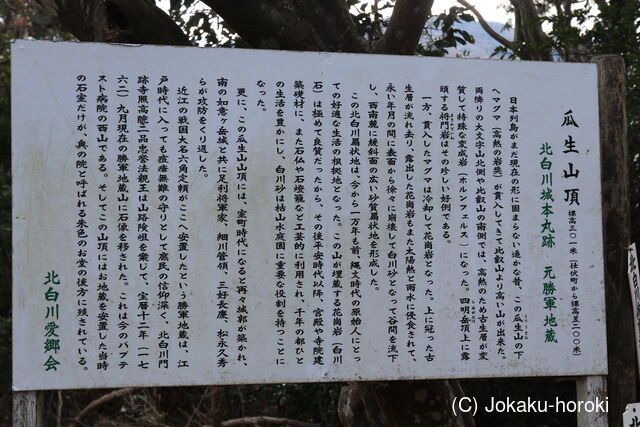 瓜生山頂 標高三〇一米(仕伏町から標高差二〇〇米)
北白川城本丸跡 元勝軍地蔵
日本列島がまだ現在の形に固まらない遥かな昔、この瓜生山の下
へマグマ(高熱の岩奬)が貫入してきて比叡山より高い山が出来た。
両隣りの大文字山北側や比叡山の南側では、高熱のため古生層が変
質して特殊な変成岩(ホルンフェルス)になった。四明岳頂上に露
頭する将門岩はその珍しい好例である。
一方、貫入したマグマは冷却して花崗岩となった。上に冠った古
生層が流れ去り、露出した花崗岩もまた太陽熱と雨水に侵食されて、
永い年月の間に表面から徐々に崩壊して白川砂となって谷間を流下
し、西南麓に緩斜面の広い砂質扇状地を形成した。
この北白川扇状地は、今から一万年も前、縄文時代の原始人にとっ
ての好適な生活の根拠地となった。この山が埋蔵する花崗岩(白川
石)は極めて良質だったから、その後平安時代以降、宮殿や寺院建
築礎材に、また石仏や石燈籠など工芸的に利用され、千年の都びと
の生活を豊かにし、白川砂は枯山水庭園に重要な役割を持つことに
なった。
更に、この瓜生山山頂には、室町時代になると再々城郭が築かれ、
南の如意ヶ岳城と共に足利将軍家、細川管領、三好長慶、松永久秀
らが攻防をくり返した。
近江の戦国大名六角定頼がここへ安置したという勝軍地蔵は、江
戸時代に入っても疫瘡無難の守りとして庶民の信仰深く、北白川門
跡寺照高院二品忠誉法親王は山路険岨を案じて、宝暦十二年(一七
六二)九月現在の勝軍地蔵山に石像を移された。これは今のバプテ
スト病院の西山である。そしてこの山頂にはお地蔵を安置した当時
の石室だけが、奥の院と呼ばれる朱色のお堂の後方に残されている。
北白川愛郷会
(C) Jokaku-horoki